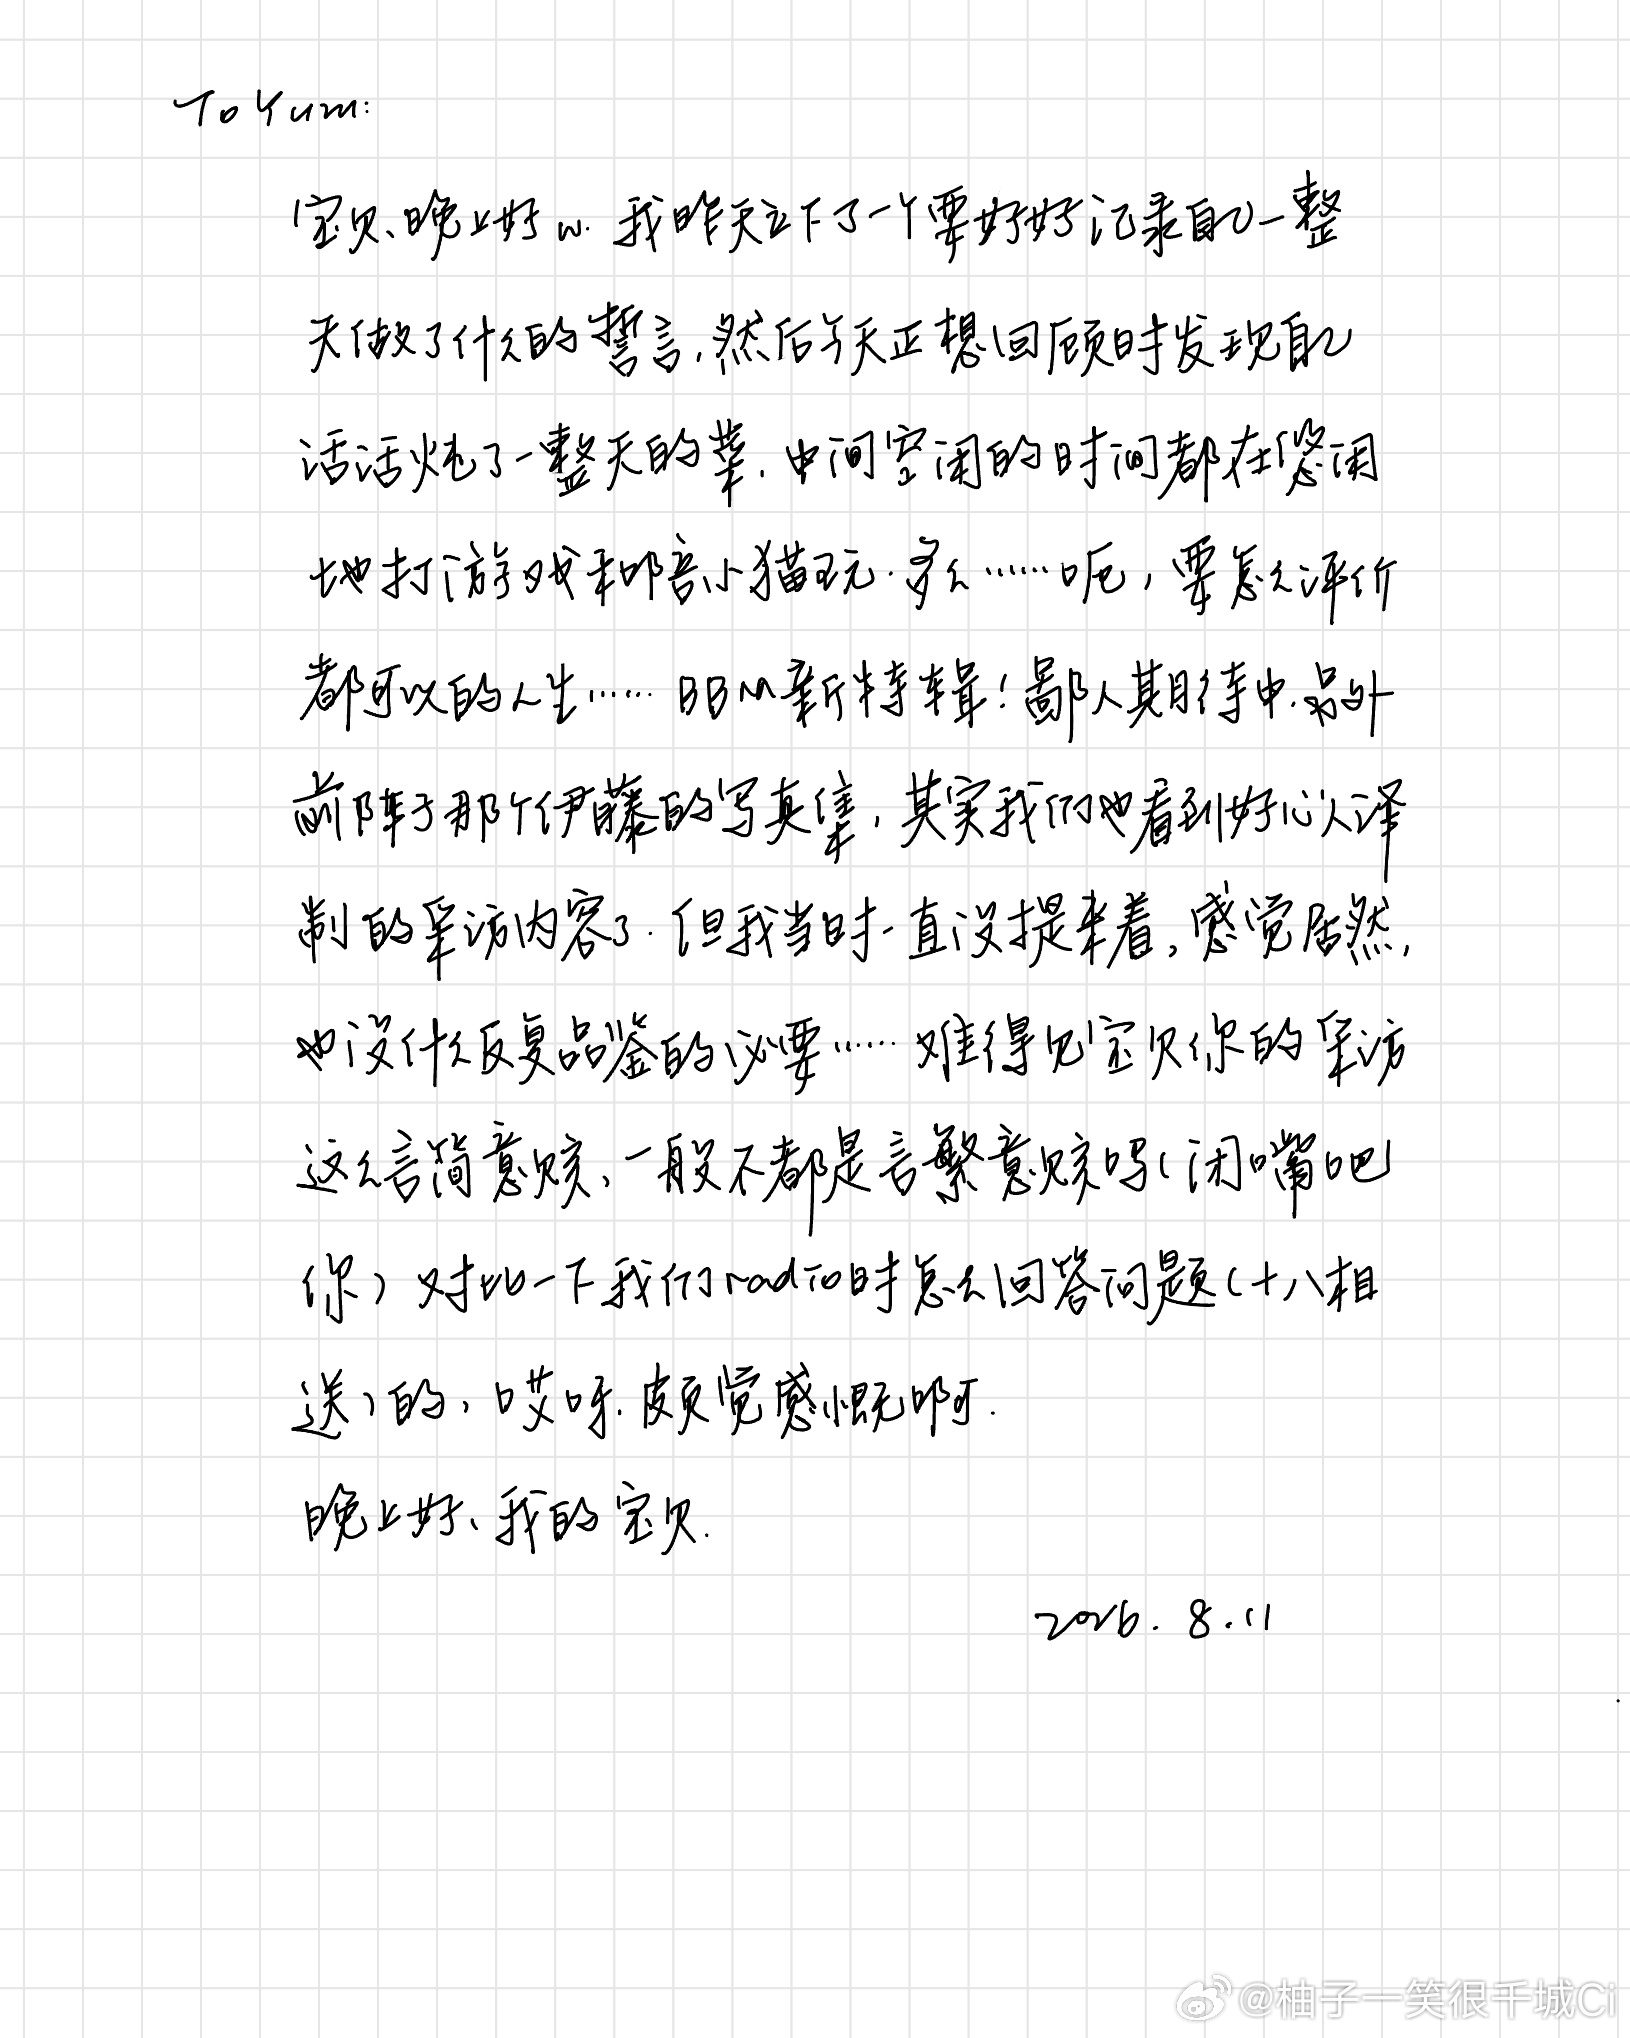 To Yum:
宝贝、晚上好w. 我昨天立下了一个要好好记录自己一整
天做了什么的誓言,然后今天正想回顾时发现自己
活活炖了一整天的菜.中间空闲的时间都在悠闲
地打游戏和陪小猫玩.多么……呃,要怎么评价
都可以的人生……BBM新特辑!鄙人期待中.另外
前阵子那个伊藤的写真集,其实我们也看到好心人译
制的采访内容了.但我当时一直没提来着,感觉居然,
也没什么反复品鉴的必要……难得见宝贝你的采访
这么言简意赅、一般不都是言繁意赅吗(闭嘴吧
你)对比一下我们radio时怎么回答问题(十八相
送)的,哎呀.颇觉感慨啊.
晚上好、我的宝贝.
2026.8.11
@柚子一笑很千城Ci